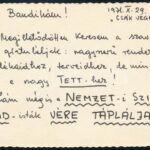 Bandikám!
1971.X.29.
"CSAK VÉGRE
Megilletődötten keresem a szava
gratuláljak: nagyszerű rendez
likáidhoz, terveidhez, de min
a nagy TETT-hez!
mégis a NEMZET-i SZÍ
-isták VÉRE TÁPLÁLJA